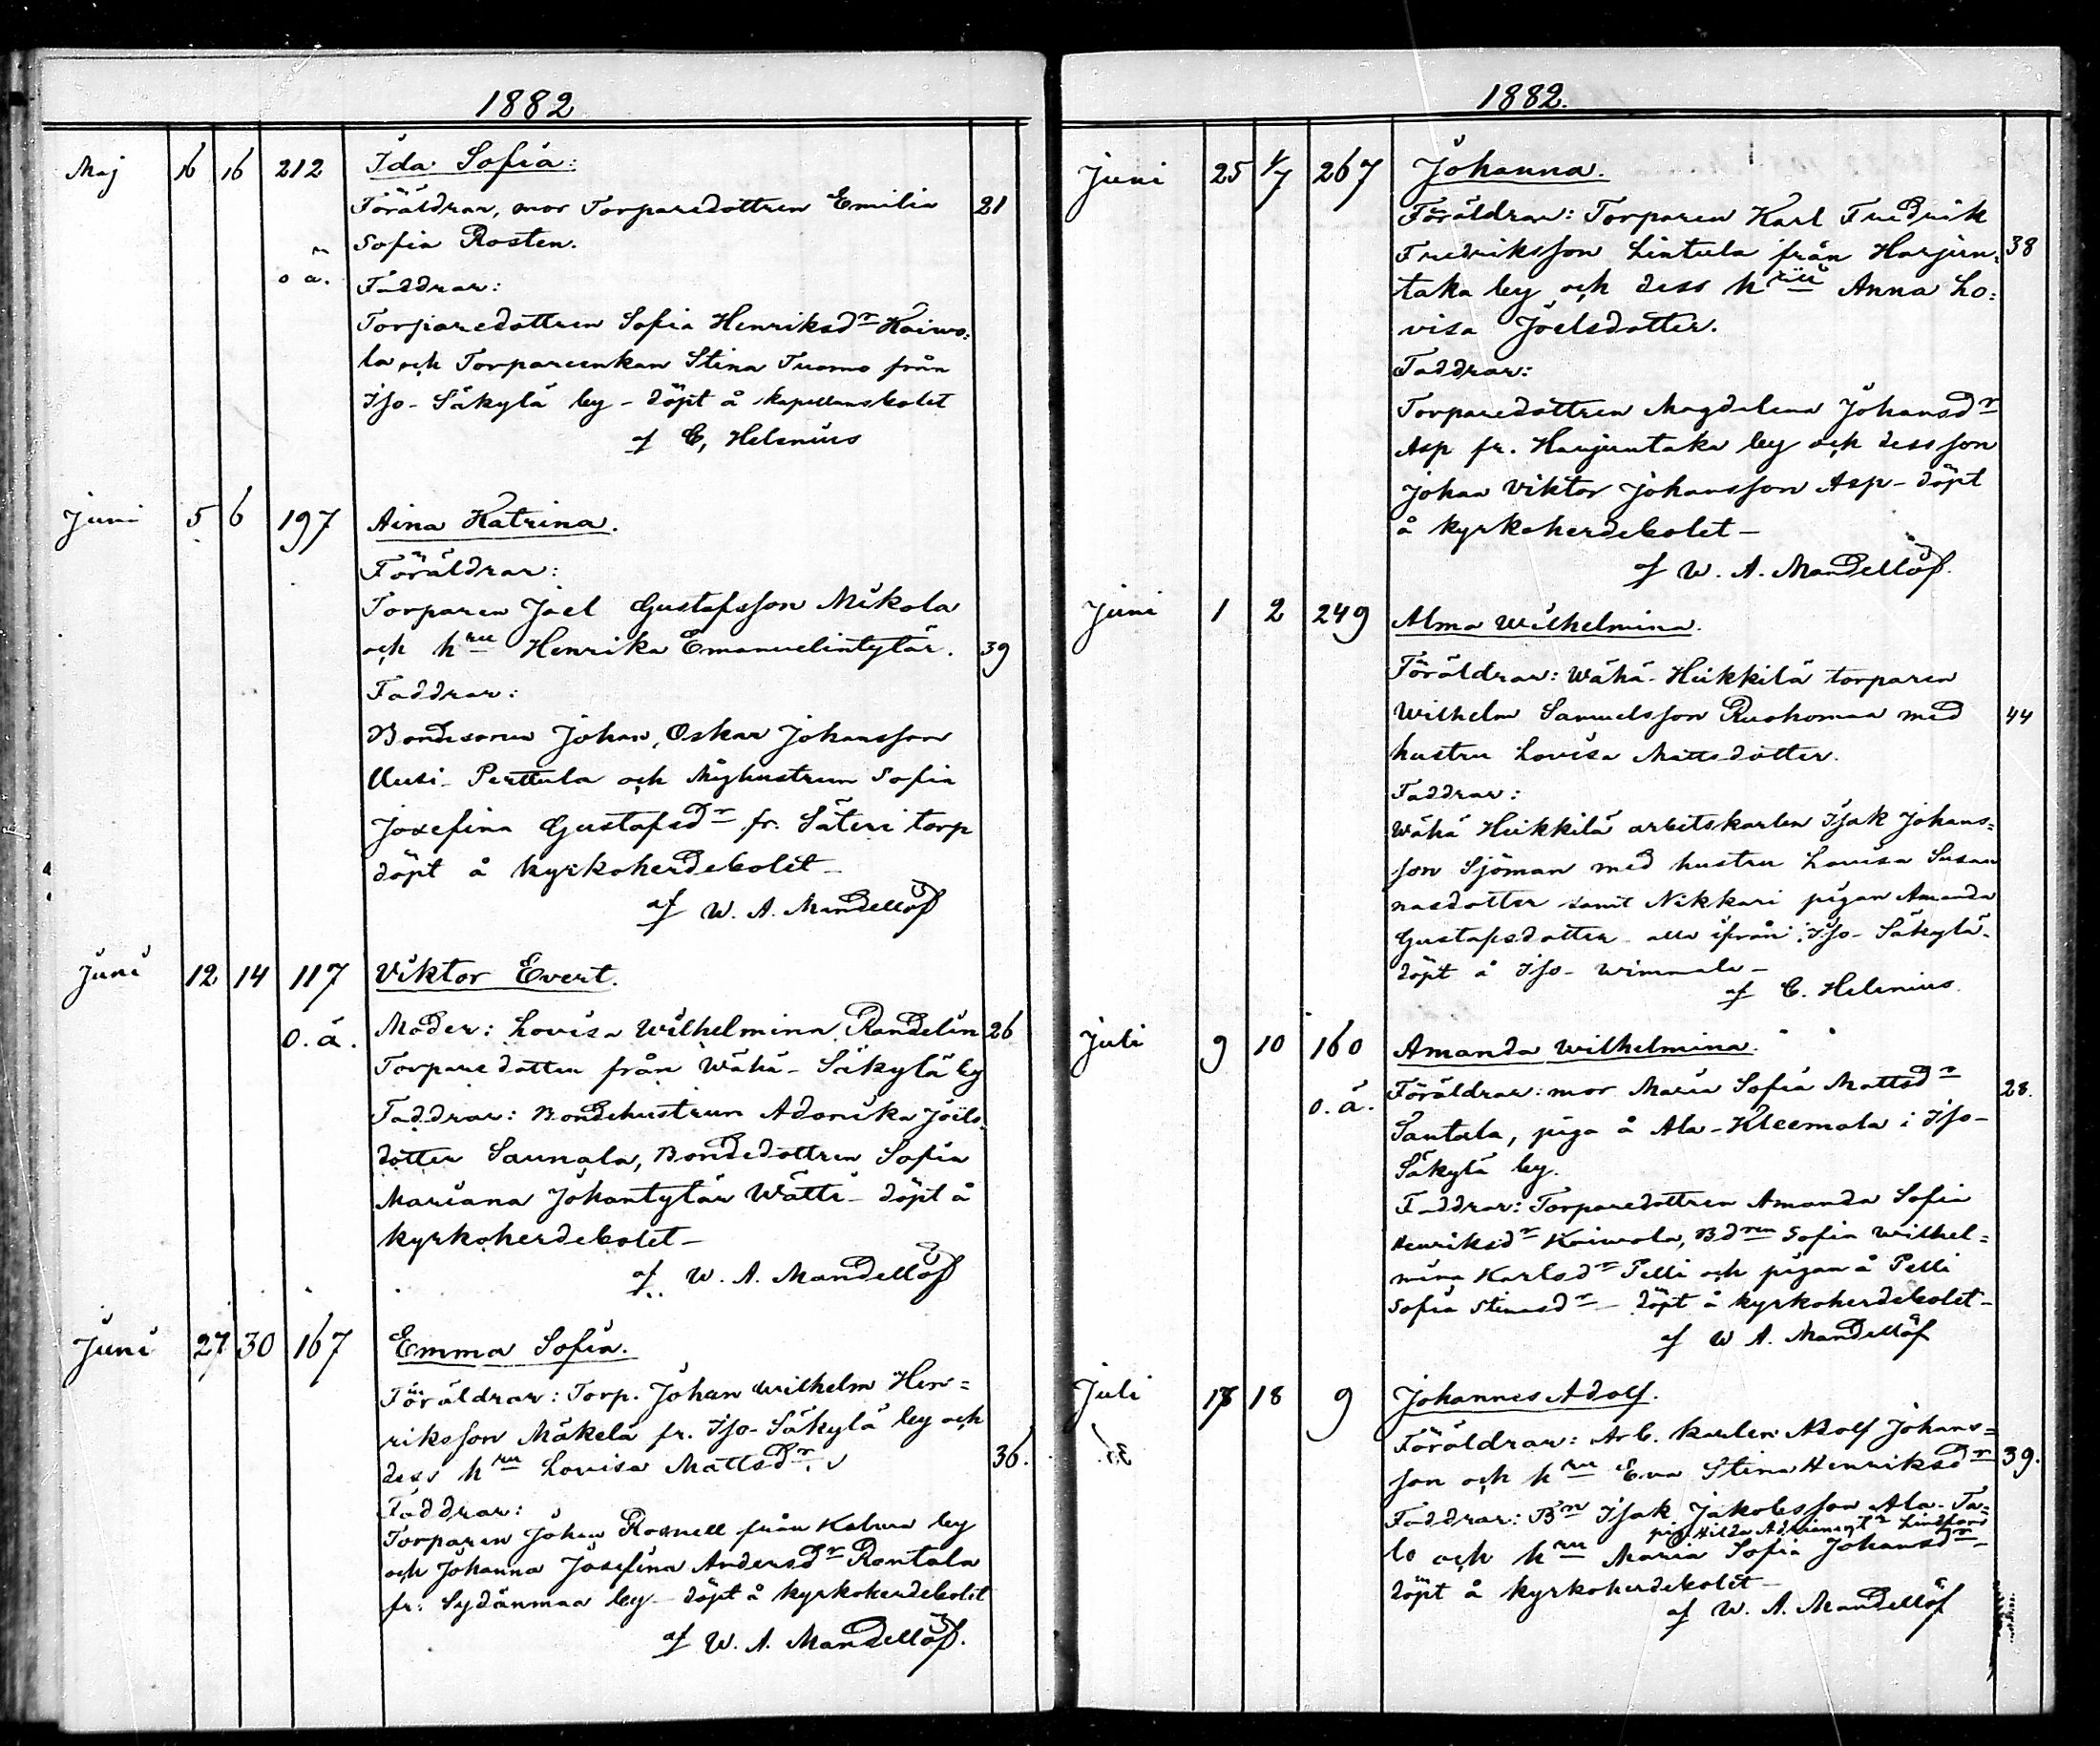 1882
Maj 16 16 212 Ida Sofia:
Föräldrar, mor Torparedottren Emilia 21
Sofia Rosten.
o ä. Faddrar:
Torparedottren Sofia Henriksdr Kaiwo=
la och Torpareenkan Stina Tuomo från
Iso-Säkylä by - döpt å kapellansbolet
af C, Helenius
Juni 5 6 197 Aina Katrina.
Föräldrar:
Torparen Joel Gustafsson Mikola
och hru Henrika Emanuelintytär. 39
Faddrar:
Bondesonen Johan, Oskar Johansson
Uusi-Perttula och Måghustrun Sofia
Josefina Gustafsdr fr. Säteri torp
döpt å kyrkoherdebolet -
af W. A. Mandellöf
Juni 12 14 117 Viktor Evert.
o. ä. Moder: Lovisa Wilhelmina Randelin 26
Torparedotter från Wähä-Säkylä by
Faddrar: Bondehustrun Adamika Joels
dotter Saunala, Bondedottren Sofia
Mariana Johantytär Wätti - döpt å
kyrkoherdebolet -
af W. A. Mandellöf
Juni 27 30 167 Emma Sofia.
Föräldrar: Torp. Johan Wilhelm Hen=
riksson Mäkelä fr. Iso-Säkylä by och
dess hru Lovisa Mattsdr. 36.
Faddrar:
Torparen Johan Rosnell från by
och Johanna Josefina Andersdr Rantala
fr. Sydänmaa by - döpt å kyrkoherdebolet
af W. A. Mandellöf.
1882.
Juni 25 1/7 267 Johanna.
Föräldrar: Torparen Karl Fredrik
Fredriksson Lintula från Harjun= 38
taka by och dess hru Anna Lo=
visa Joelsdotter.
Faddrar:
Torparedottren Magdalena Johansdr
Asp fr. Harjuntaka by och dess son
Johan Viktor Johansson Asp - döpt
å kyrkoherdebolet -
af W. A. Mandellöf.
Juni 1 2 249 Alma Wilhelmina.
Föräldrar: Wähä-Heikkilä torparen
Wilhelm Samuelsson Ruohomaa med 44
hustru Lovisa Mattsdotter.
Faddrar:
Wähä Heikkilä arbetskarlen Isak Johans=
son Sjöman med hustru Lovisa Susan
nasdotter samt Nikkari pigan Amanda
Gustafsdotter alla ifrån Iso-Säkylä -
döpt å Iso-Wimmala -
af C. Helenius
Juli 9 10 160 Amanda Wilhelmina.
o. ä. Föräldrar: mor Maria Sofia Mattsdr 28.
Santala, piga å Ala-Kleemola i Iso-
Säkylä by.
Faddrar: Torparedottren Amanda Sofia
Henriksdr Kaiwola, Bdren Sofia Wilhel=
mina Karlsdr Pelli och pigan å Pelli
Sofia Stinasdr - döpt å kyrkoherdebolet -
af W A. Mandellöf
Juli 18 18 9 Johannes Adolf.
Föräldrar: Arb. karlen Adolf Johans=
son och hru Eva Stina Henriksdr 39.
Faddrar: Bn Isak Jakobsson Ala-Ta=
pig. Hilda Lindfors
lo och hru Maria Sofia Johansdr -
döpt å kyrkoherdebolet -
af W. A. Mandellöf